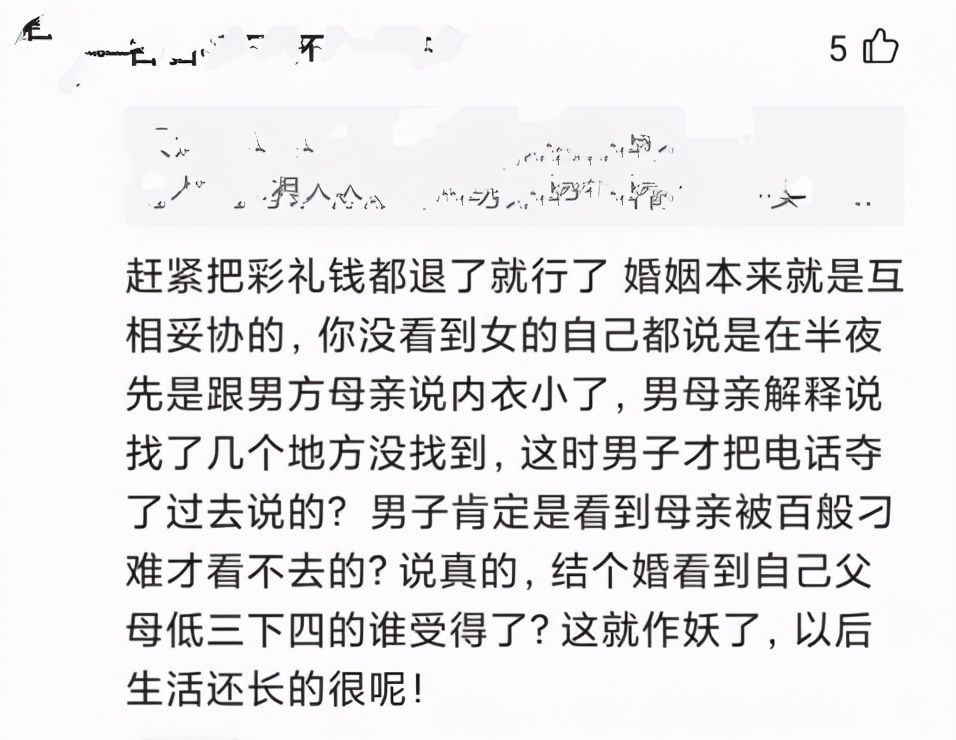 5
赶紧把彩礼钱都退了就行了 婚姻本来就是互
相妥协的，你没看到女的自己都说是在半夜
先是跟男方母亲说内衣小了，男母亲解释说
找了几个地方没找到，这时男子才把电话夺
了过去说的？ 男子肯定是看到母亲被百般刁
难才看不去的？说真的，结个婚看到自己父
母低三下四的谁受得了？这就作妖了，以后
生活还长的很呢！